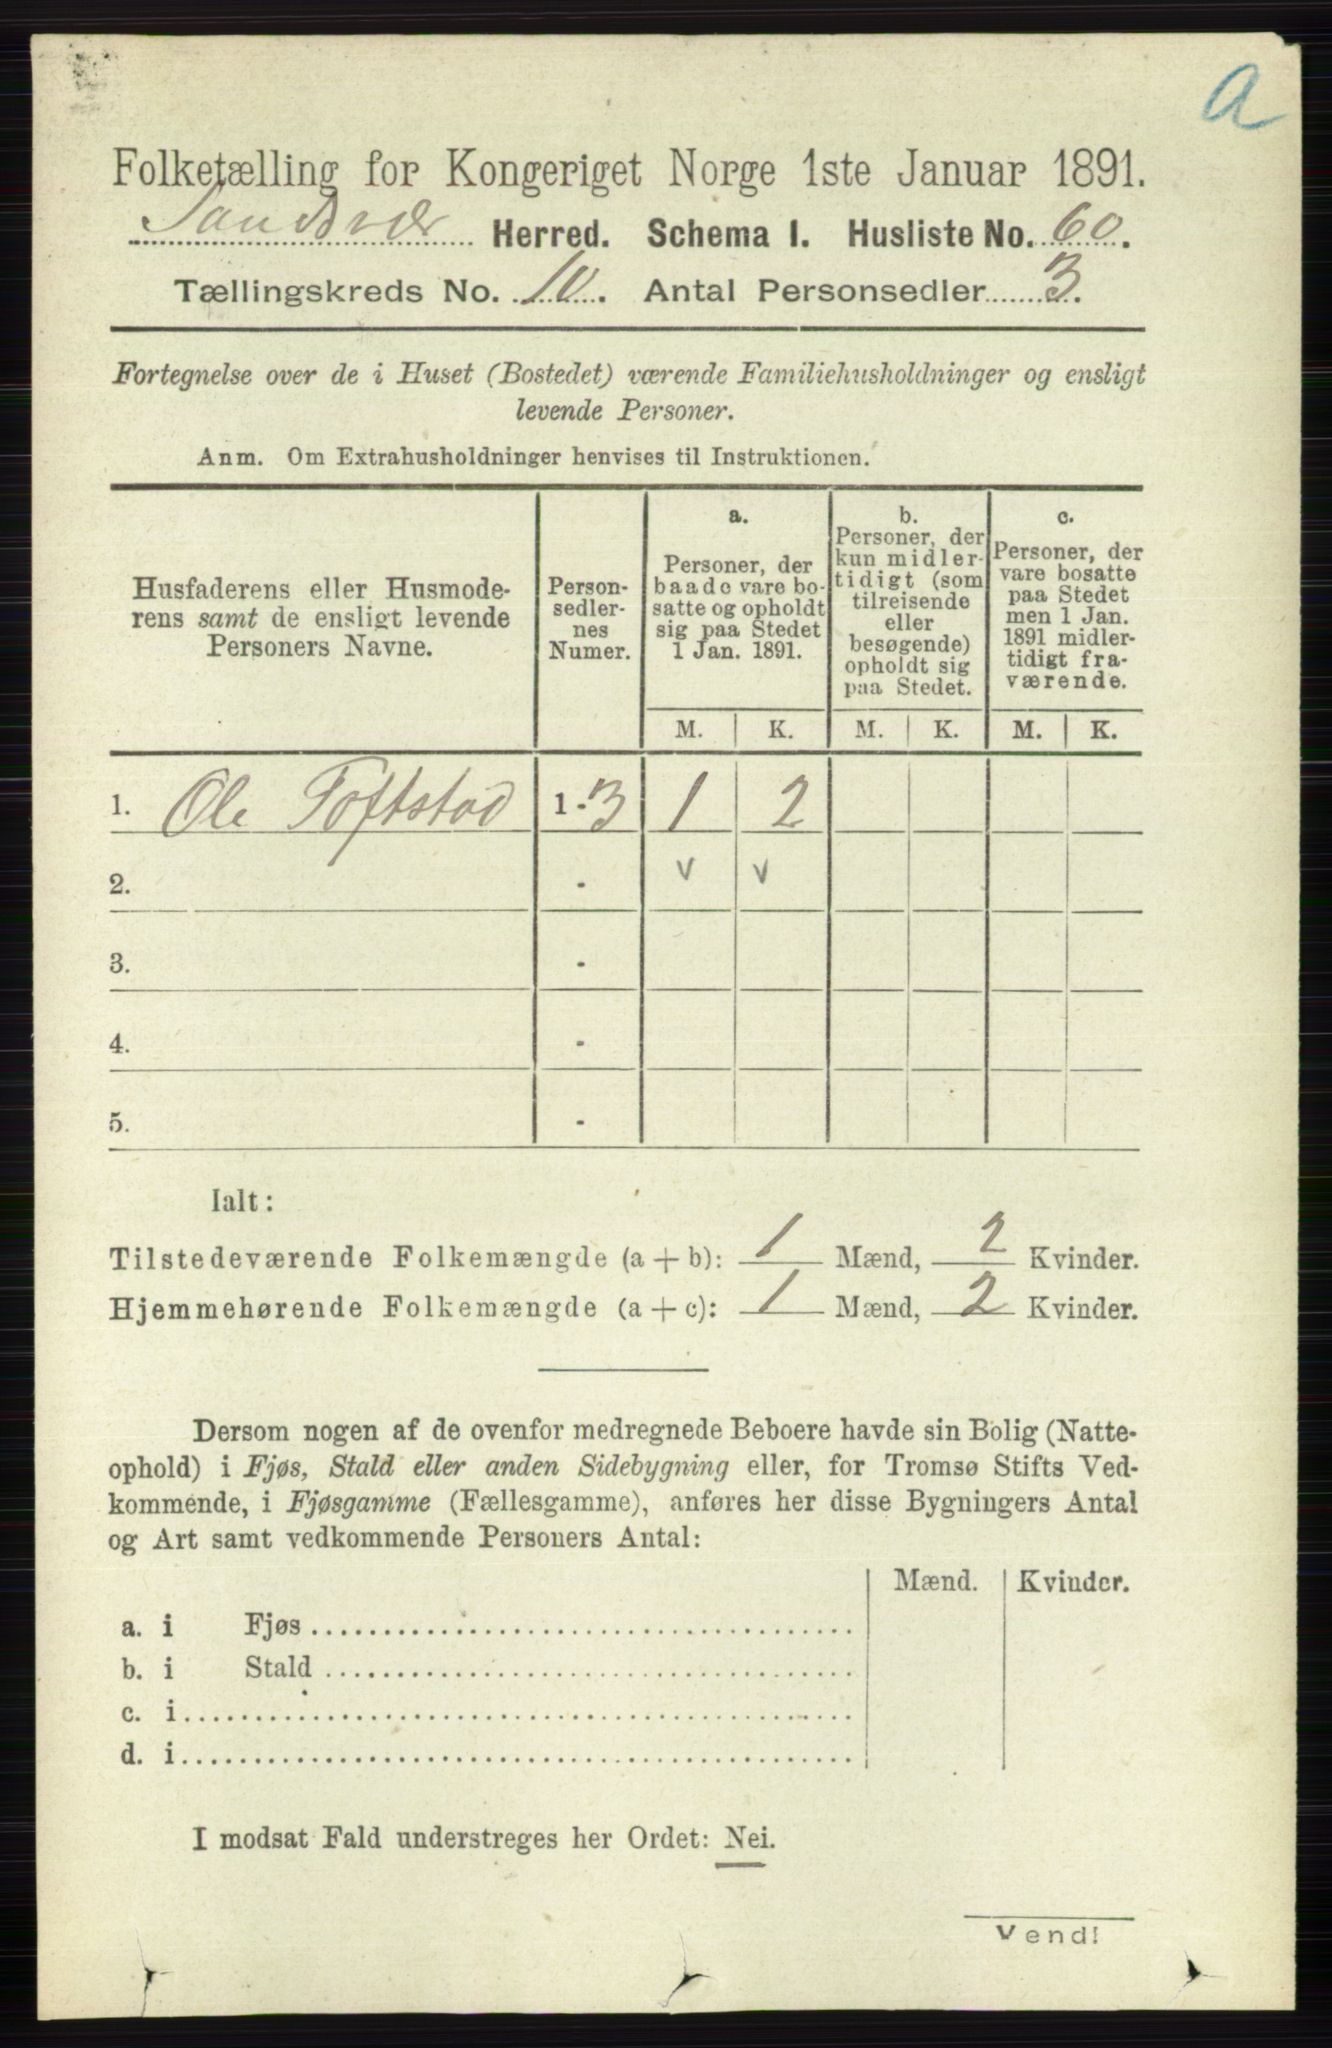 a
Folketælling for Kongeriget Norge 1ste Januar 1891.
Sandsvær Herred. Schema I. Husliste No. 60.
Tællingskreds No. 10. Antal Personsedler 3.
Fortegnelse over de i Huset (Bostedet) værende Familiehusholdninger og ensligt
levende Personer.
Anm. Om Extrahusholdninger henvises til Instruktionen.
Husfaderens eller Husmode-
rens samt de ensligt levende
Personers Navne.
Person-
sedler-
nes
Numer.
a.
Personer, der
baade vare bo-
satte og opholdt
sig paa Stedet
1 Jan. 1891.
b.
Personer, der
kun midler-
tidigt (som
tilreisende
eller
besøgende)
opholdt sig
paa Stedet.
c.
Personer, der
vare bosatte
paa Stedet
men 1 Jan.
1891 midler-
tidigt fra-
værende.
M. K. M. K. M. K.
1. Ole Toftstad 1-3 1 2
2. - v v
3. -
4. -
5. -
Ialt:
Tilstedeværende Folkemængde (a + b): 1 Mænd, 2 Kvinder.
Hjemmehørende Folkemængde (a + c): 1 Mænd, 2 Kvinder.
Dersom nogen af de ovenfor medregnede Beboere havde sin Bolig (Natte-
ophold) i Fjøs, Stald eller anden Sidebygning eller, for Tromsø Stifts Ved-
kommende, i Fjøsgamme (Fællesgamme), anføres her disse Bygningers Antal
og Art samt vedkommende Personers Antal:
Mænd. Kvinder.
a. i Fjøs
b. i Stald
c. i
d. i
I modsat Fald understreges her Ordet: Nei.
Vend!